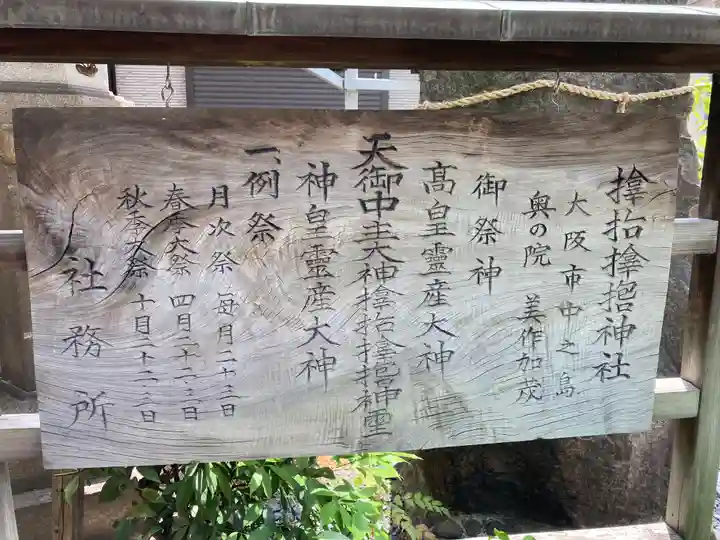 撑抬撑抱神社
大阪市中之島
奥の院 美作加茂
御祭神
高皇霊産大神
天御中主大神撑抬撑抱神霊
神皇霊産大神
一、例祭
月次祭 毎月二十三日
春季大祭 四月二十二・二三日
秋季大祭 十月二十二・二三日
社務所